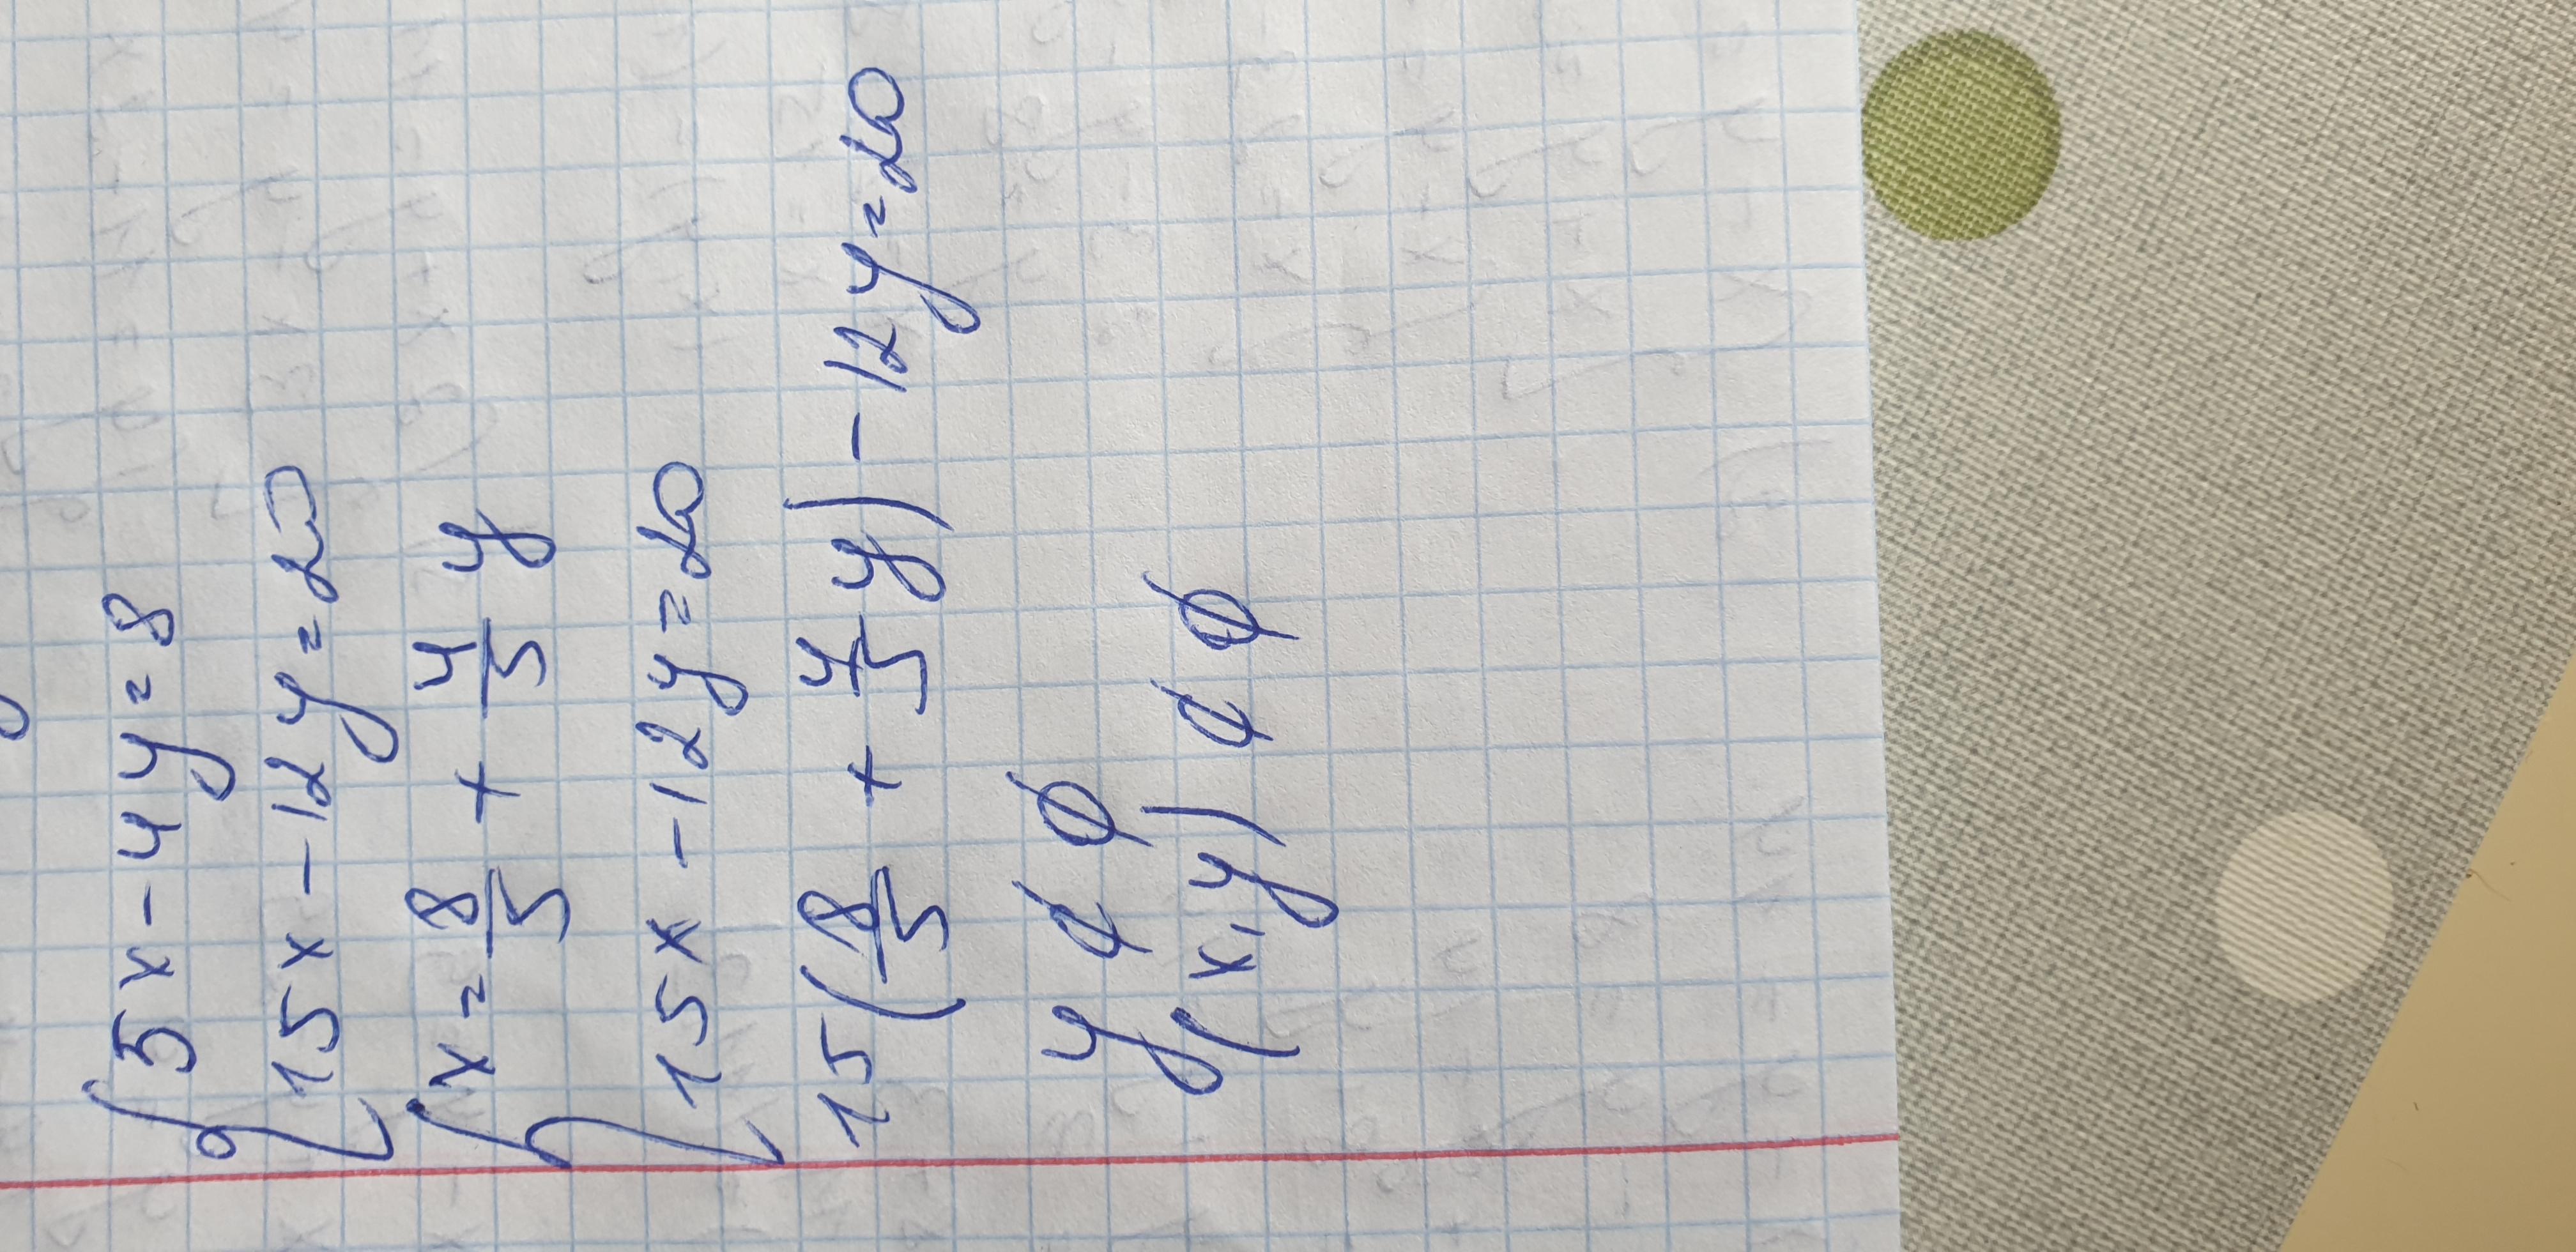 5x - 4y = 8
15x - 12y = 20
x = 8/5 + 4/5 y
15x - 12y = 20
15(8/5 + 4/5 y) - 12y = 20
y ¢ Ø
(x,y) ¢ Ø